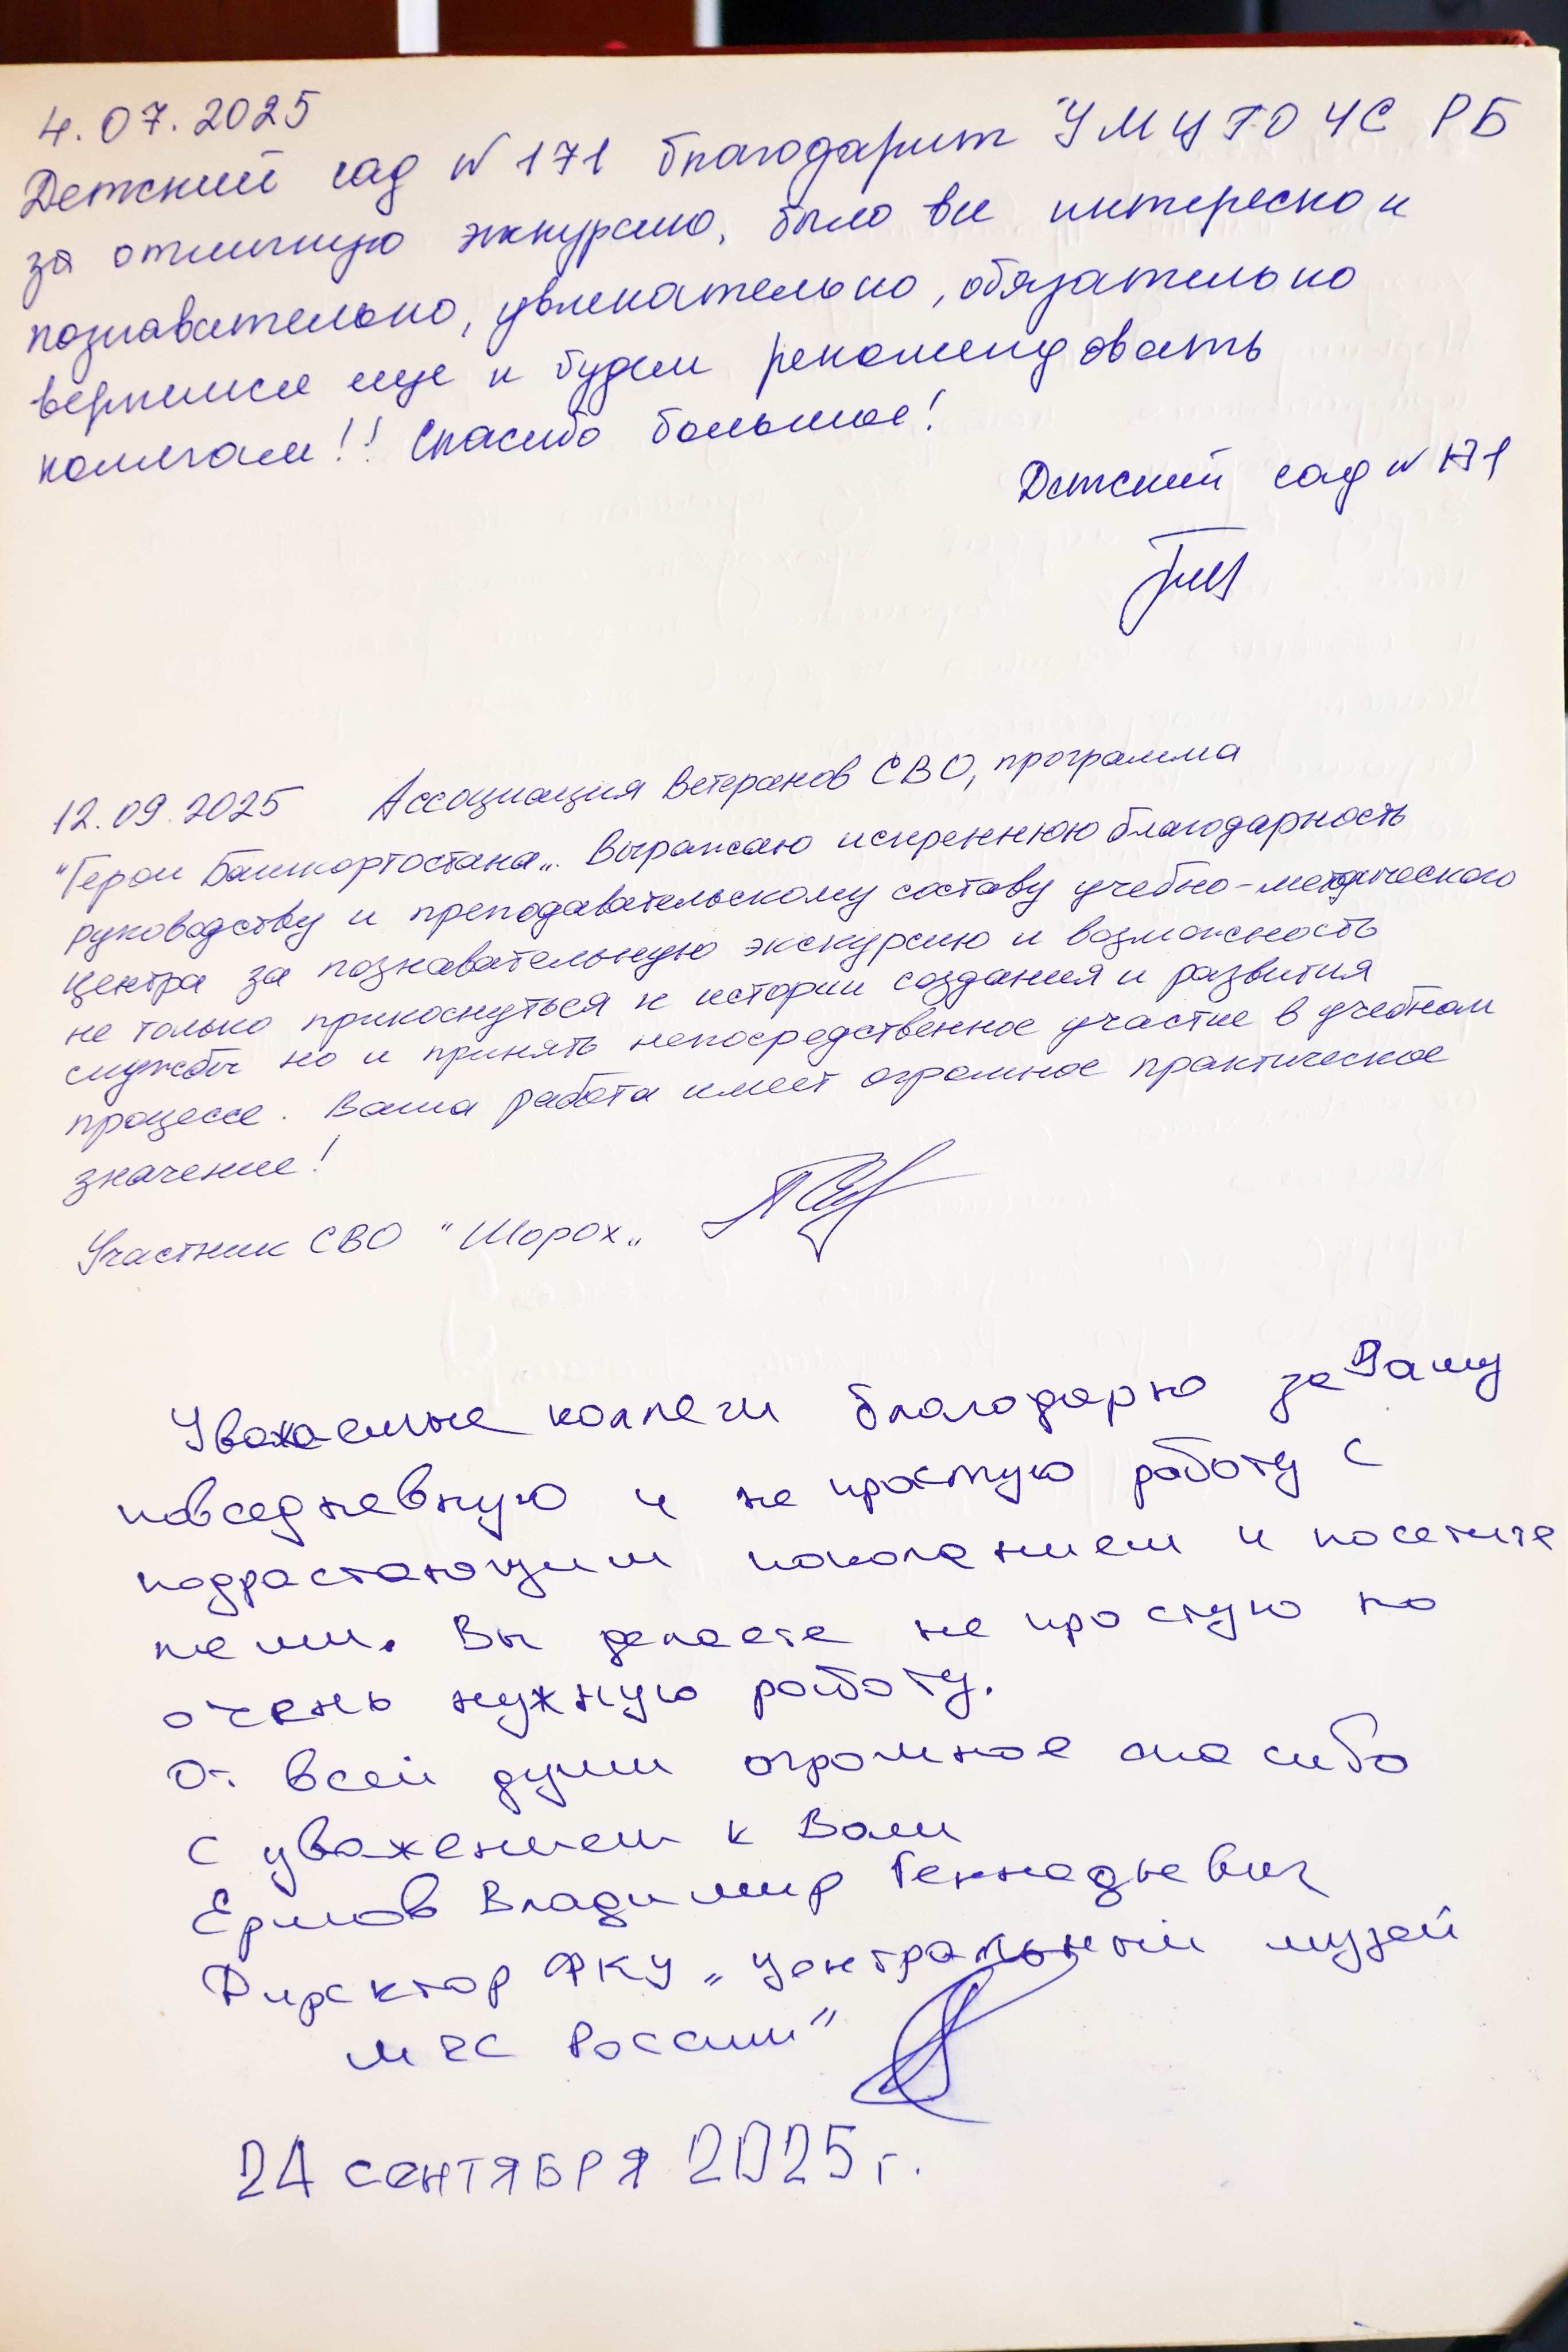 4.07.2025
Детский сад №171 благодарит УМЦ ГО ЧС РБ
за отличную экскурсию, было все интересно и
познавательно, увлекательно, обязательно
вернемся еще и будем рекомендовать
коллегам!! Спасибо большое!
Детский сад №171
12.09.2025 Ассоциация Ветеранов СВО, программа
"Герои Башкортостана". Выражаю искреннюю благодарность
руководству и преподавательскому составу учебно-методического
центра за познавательную экскурсию и возможность
не только прикоснуться к истории создания и развития
службы но и принять непосредственное участие в учебном
процессе. Ваша работа имеет огромное практическое
значение!
Участник СВО "Шорох"
Уважаемые коллеги благодарю за Вашу
повседневную и не простую работу с
подрастающим поколением и посетите
лями. Вы делаете не простую но
очень нужную работу.
От всей души огромное спасибо
С уважением к Вам
Владимир Геннадьевич
Директор ФКУ "Центральный музей
МЧС России"
24 сентября 2025 г.